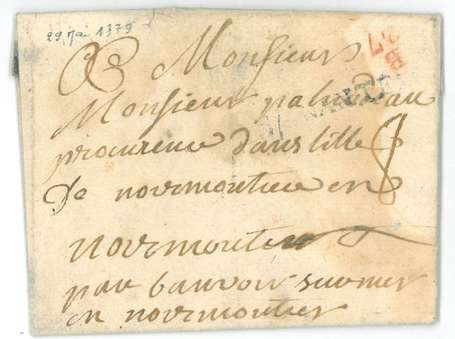 29 Mai 1779
A Monsieur
Monsieur palvadeau
procureur dans lille
De noirmoutier en
noirmoutier
par bauvoir sur mer
en noirmoutier